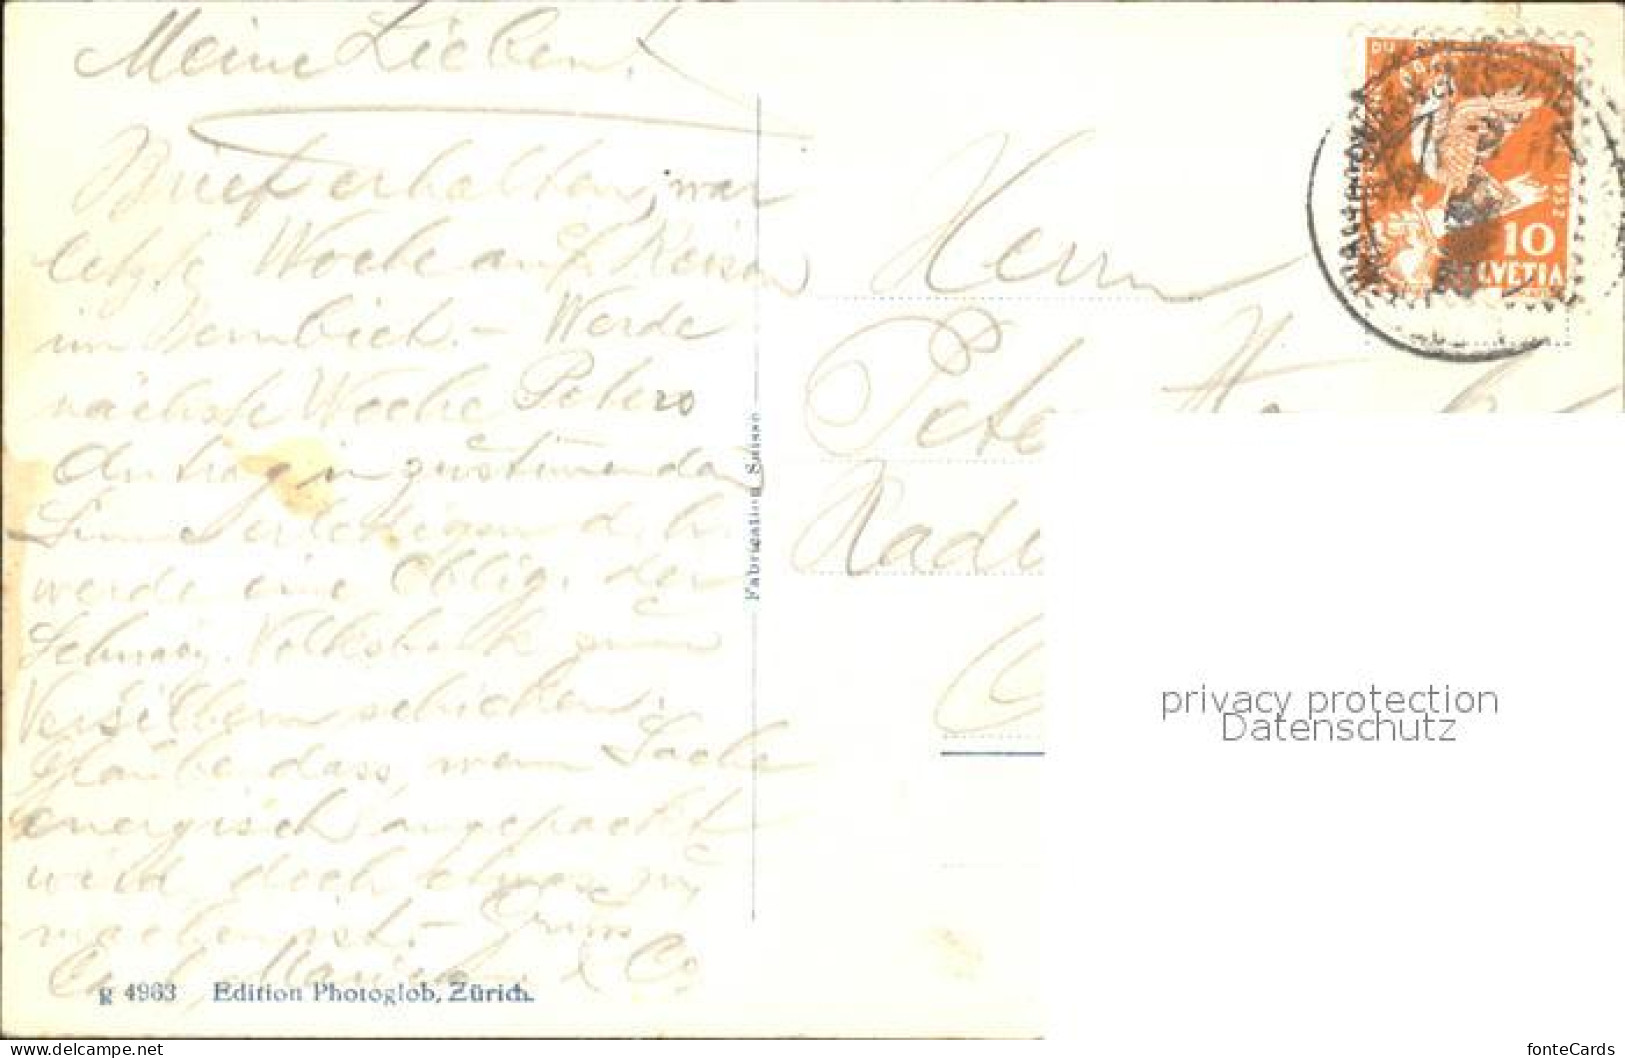 Meine Lieben!
Brief erhalten, war
letzte Woche auf Reisen
im Bernbiet. - Werde
nächste Woche Peters
Antrag in zustimmendem
Sinne erledigen d. h.
werde eine Oblig. der
Schweiz. Volksbank zum
Versilbern schicken.
Glaube dass, wenn Sache
energisch angepackt
wird doch etwas zu
machen ist. - Gruss
& Co
g 4963 Edition Photoglob, Zürich.
Fabrication Suisse
Herrn
Peter
1932
10
HELVETIA
privacy protection
Datenschutz
www.delcampe.net
fonteCards